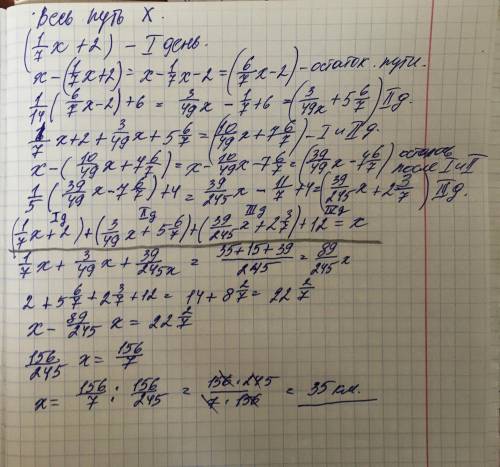 Весь путь X.
(1/7 x + 2) - I день.
x - (1/7 x + 2) = x - 1/7 x - 2 = (6/7 x - 2) - остаток пути.
1/14 (6/7 x - 2) + 6 = 3/49 x - 1/7 + 6 = (3/49 x + 5 6/7) II д.
1/7 x + 2 + 3/49 x + 5 6/7 = (10/49 x + 7 6/7) - I и II д.
x - (10/49 x + 7 6/7) = x - 10/49 x - 7 6/7 = (39/49 x - 7 6/7) остаток после I и II
1/5 (39/49 x - 7 6/7) + 4 = 39/245 x - 11/7 + 4 = (39/245 x + 2 3/7) III д.
I д II д III д IV д
(1/7 x + 2) + (3/49 x + 5 6/7) + (39/245 x + 2 3/7) + 12 = x
1/7 x + 3/49 x + 39/245 x = 35 + 15 + 39 / 245 = 89/245 x
2 + 5 6/7 + 2 3/7 + 12 = 14 + 8 2/7 = 22 2/7
x - 89/245 x = 22 2/7
156/245 x = 156/7
x = 156/7 : 156/245 = 156 · 245 / 7 · 156 = 35 км.